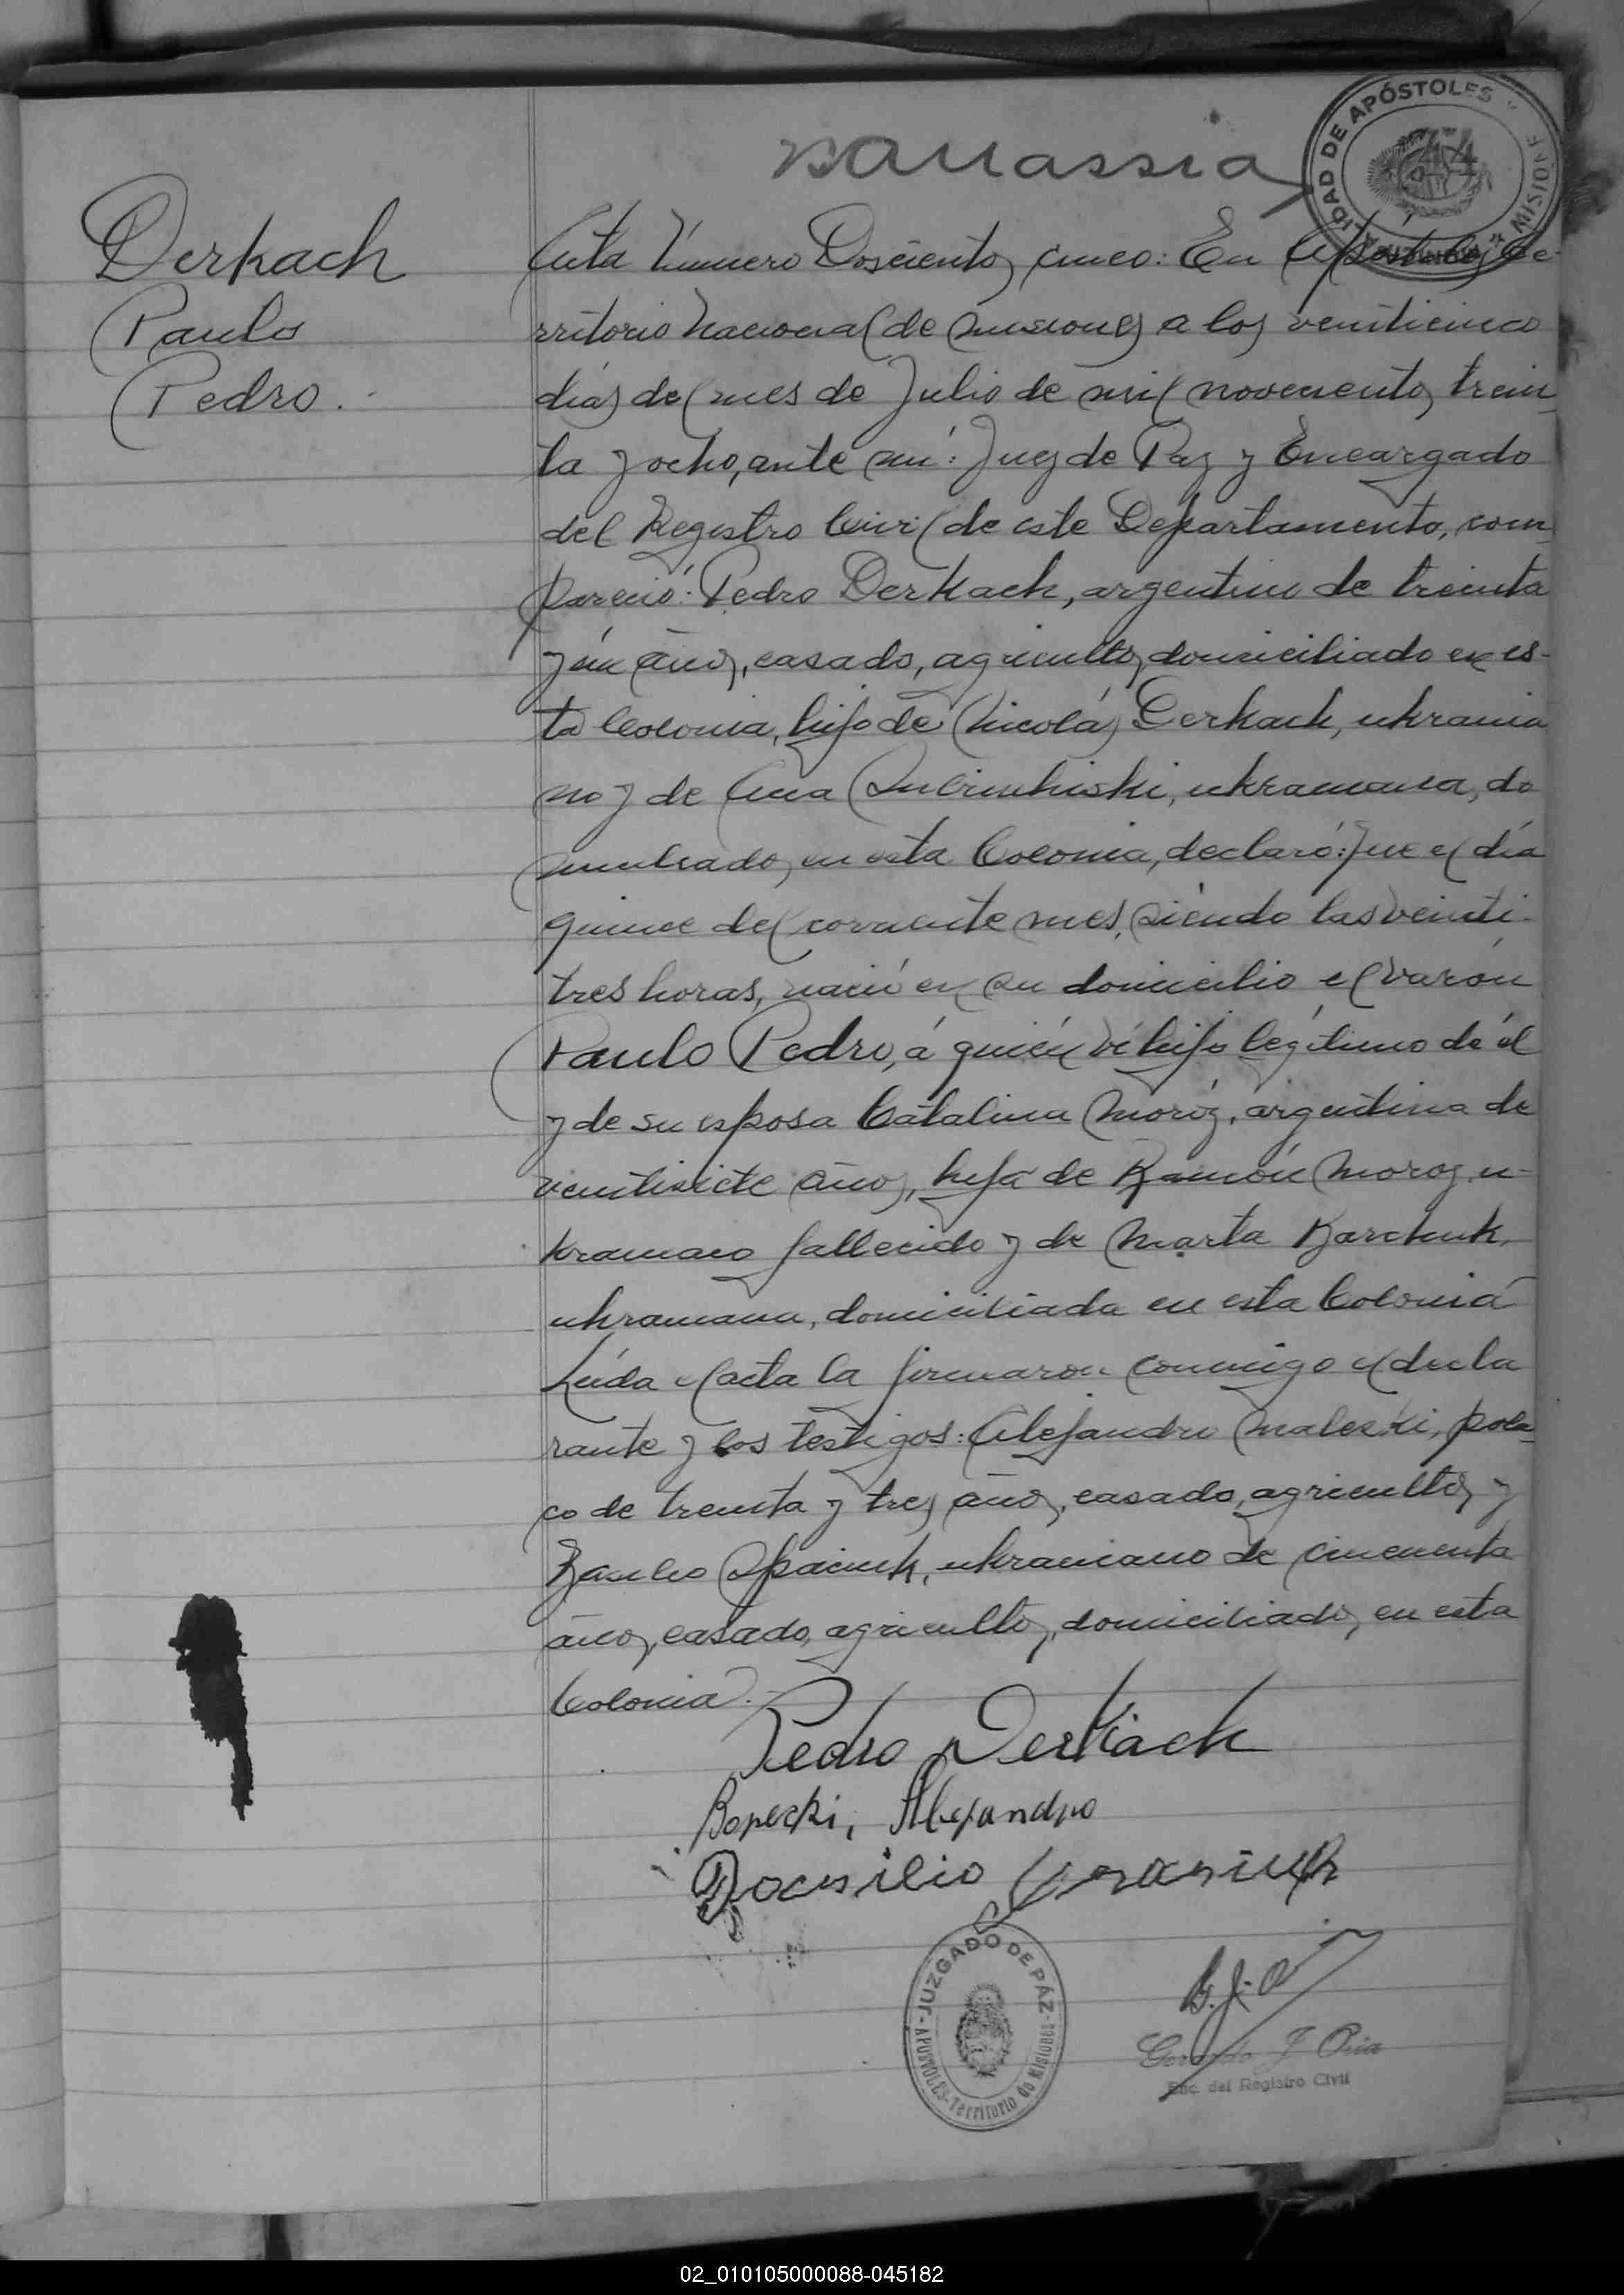 Derkach
Paulo
Pedro.
MUNICIPALIDAD DE APÓSTOLES
MISIONES
44
Acta Número Doscientos cinco: En Apóstoles, Te-
rritorio Nacional de Misiones a los veinticinco
días del mes de Julio de mil novecientos trein
ta y ocho, ante mí: Juez de Paz y Encargado
del Registro Civil de este Departamento, com
pareció: Pedro Derkach, argentino de treinta
y un años, casado, agricultor, domiciliado en es-
ta Colonia, hijo de Nicolás Derkach, ukrania
no y de Ana ukraniana, do
miciliados en esta Colonia, declaró: Que el día
quince del corriente mes, siendo las veinti-
tres horas, nació en su domicilio el varón
Paulo Pedro, á quién ví hijo legítimo de él
y de su esposa Catalina Moroz, argentina de
veintisiete años, hija de Ramón Moroz, u-
kraniano fallecido y de Marta Karchuk,
ukraniana, domiciliada en esta Colonia
Leída el acta la firmaron conmigo el decla
rante y los testigos: Alejandro pola
co de treinta y tres años, casado, agricultor y
Basilio Spaciuk, ukraniano de cincuenta
años, casado, agricultor, domiciliados en esta
Colonia.-
Pedro Derkach
Alejandro
JUZGADO DE PAZ
APOSTOLES - Territorio de Misiones
G. J. O
Gerardo J Oria
Enc. del Registro Civil
02_010105000088-045182